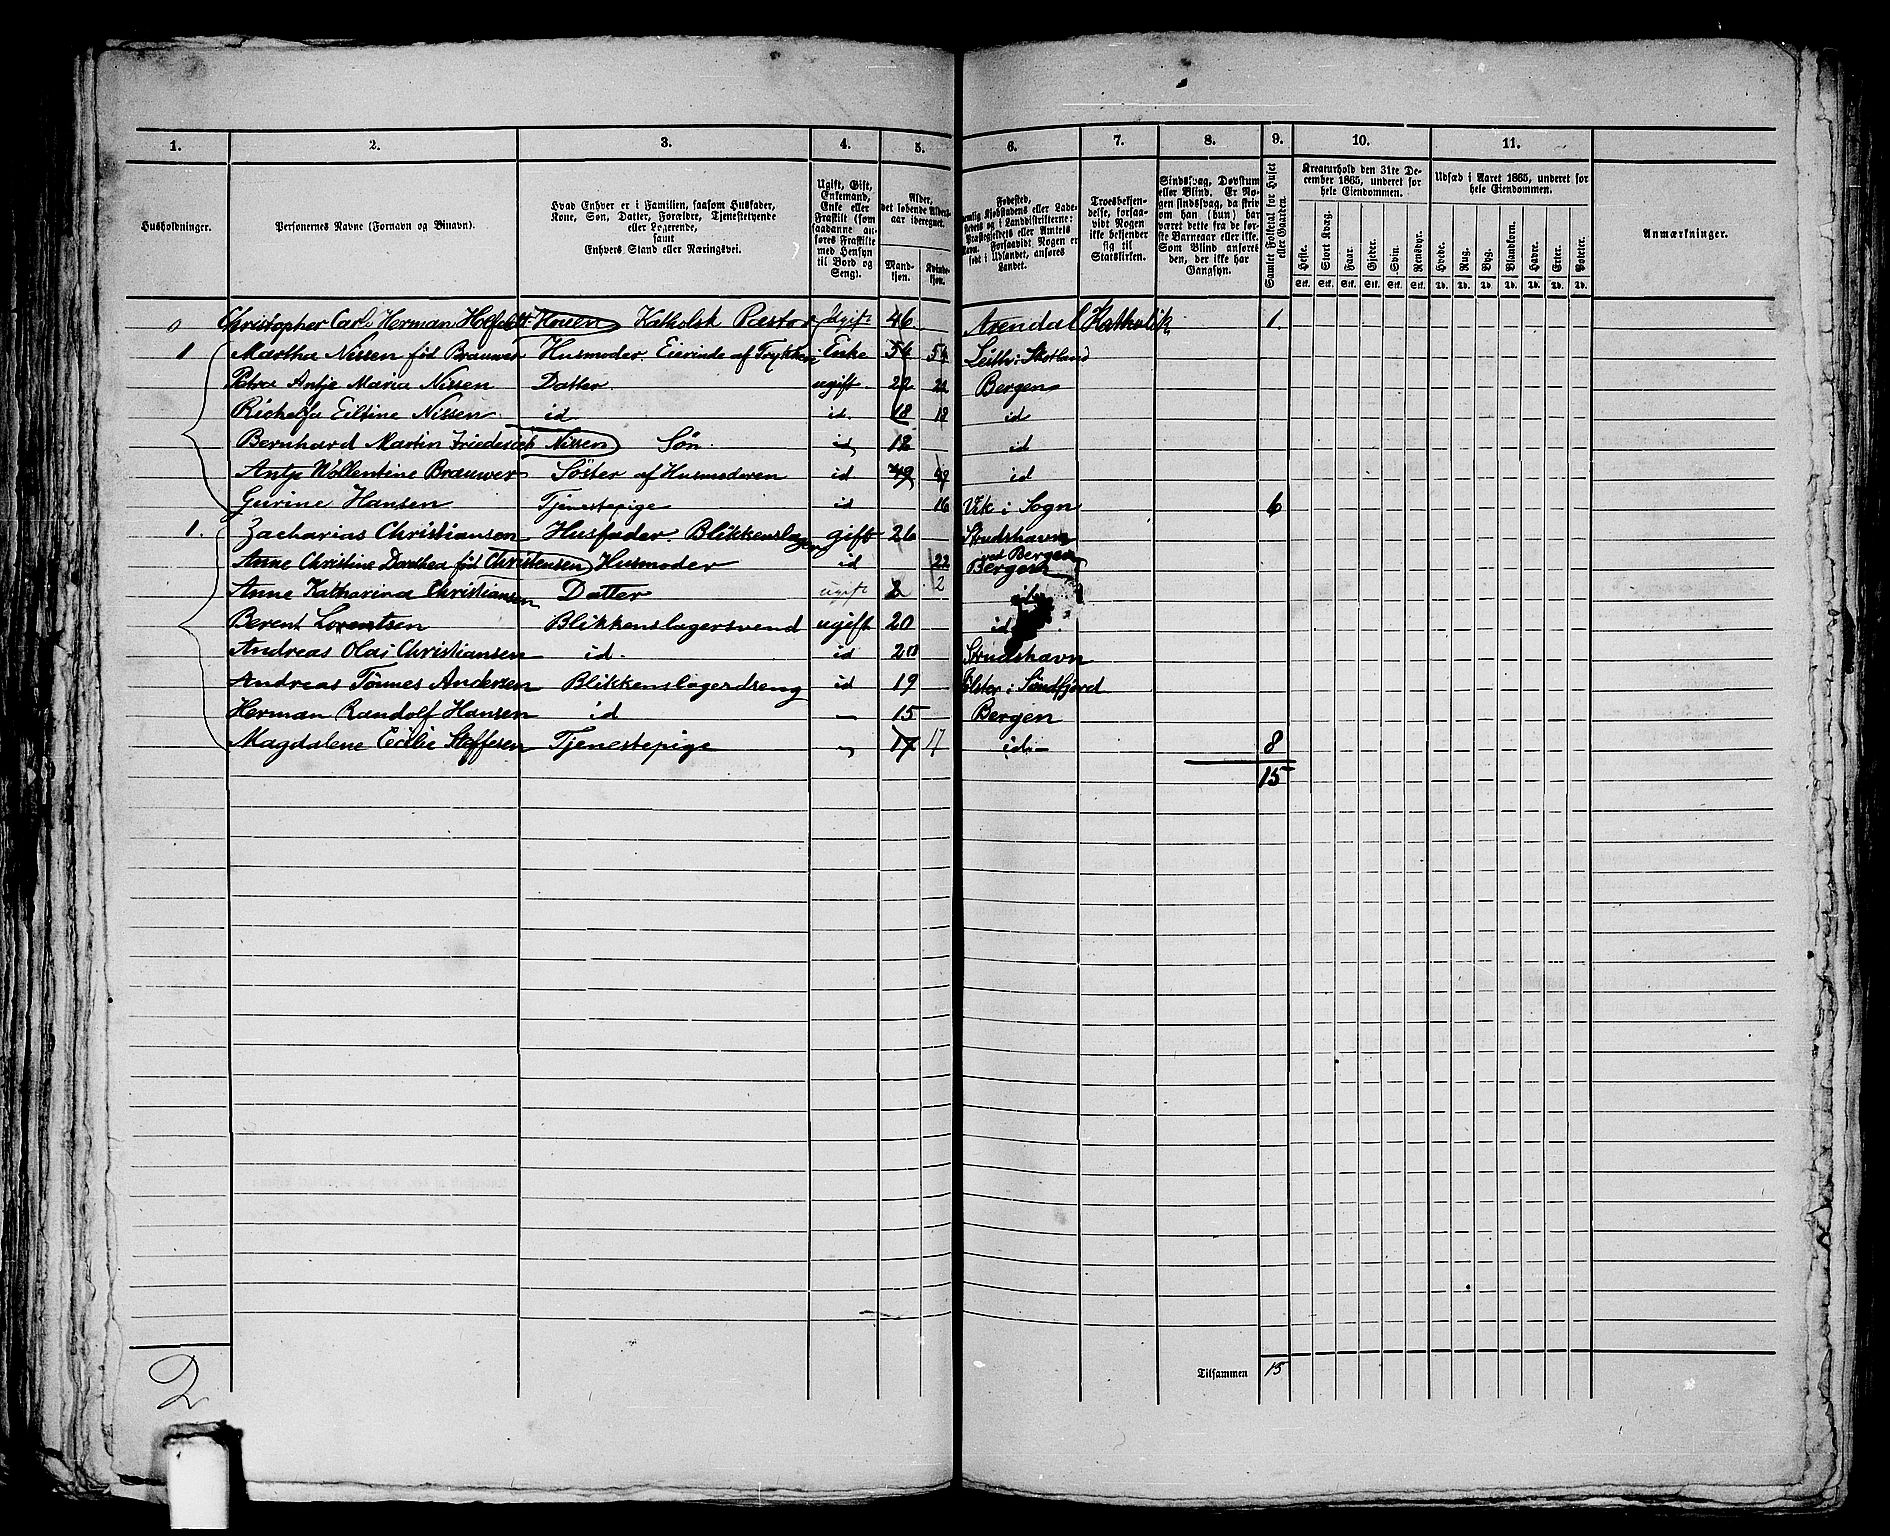 1. 2. 3. 4. 5. 6. 7. 8. 9. 10. 11.
Husholdninger.
Personernes Navne (Fornavn og Binavn).
Hvad Enhver er i Familien, saasom Husfader,
Kone, Søn, Datter, Forældre, Tjenestetyende
eller Logerende,
samt
Enhvers Stand eller Næringsvei.
Ugift, Gift,
Enkemand,
Enke eller
Fraskilt (som
saadanne an-
føres Fraskilte
med Hensyn
til Bord og
Seng).
Alder,
det løbende Alders-
aar iberegnet.
Mand-
kjøn.
Kvinde-
kjøn.
Fødested,
nemlig Kjøbstadens eller Lade-
stedets og i Landdistrikterne:
Præstegjeldets eller Amtets
Navn. Forsaavidt Nogen er
født i Udlandet, anføres
Landet.
Troesbekjen-
delse, forsaa-
vidt Nogen
ikke bekjender
sig til
Statskirken.
Sindssvag, Døvstum
eller Blind. Er No-
gen sindssvag, da skriv
om han (hun) har
været dette fra de før-
ste Barneaar eller ikke.
Som Blind ansees
den, der ikke har
Gangsyn.
Samlet Folketal for Huset
eller Gaarden.
Kreaturhold den 31te De-
cember 1865, underet for
hele Eiendommen.
Heste. Stort Kvæg. Faar. Gjeder. Svin. Rensdyr.
Stk. Stk. Stk. Stk. Stk. Stk.
Udsæd i Aaret 1865, underet for
hele Eiendommen.
Hvede. Rug. Byg. Blandkorn. Havre. Erter. Poteter.
Td. Td. Td. Td. Td. Td. Td.
Anmærkninger.
0 Christopher Carl Herman Holfeldt Houen Katholsk Pastor Ugift 46 Arendal Katholik 1.
1 Martha Nissen fød Brauwer Husmoder. Eierinde af Trykkeri Enke 54 54 Leith i Skotland
Petra Antje Maria Nissen Datter ugift 22 22 Bergen
Richelfa Eilsine Nissen id id 18 18 id
Bernhard Martin Friederich Nissen Søn id 12 id
Antje Wollentine Brauwer Søster af Husmoderen id 49 49 id
Gurine Hansen Tjenestepige id 16 Vik i Sogn 6
1. Zacharias Christiansen Husfader. Blikkenslager gift 26 Strudshavn
ved Bergen
Anne Christine Dorthea fød Christensen Husmoder id 22 Bergen
Anne Katharina Christiansen Datter ugift 2 2 id
Berent Lorentsen Blikkenslagersvend ugift 20 id
Andreas Olai Christiansen id. id 20 Strudshavn
Andreas Tønnes Andersen Blikkenslagerdreng id 19 Jølster i Søndfjord
Herman Randolf Hansen id — 15 Bergen
Magdalene Cecilie Steffesen Tjenestepige 17 17 id 8
15
Tilsammen 15
2